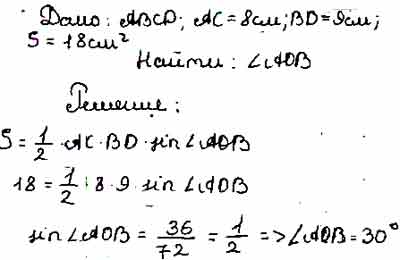 Дано: ABCD; AC=8см; BD=9см;
S=18см²
Найти: ∠AOB
Решение:
S=1/2·AC·BD·sin∠AOB
18=1/2·8·9·sin∠AOB
sin∠AOB=36/72=1/2=>∠AOB=30°